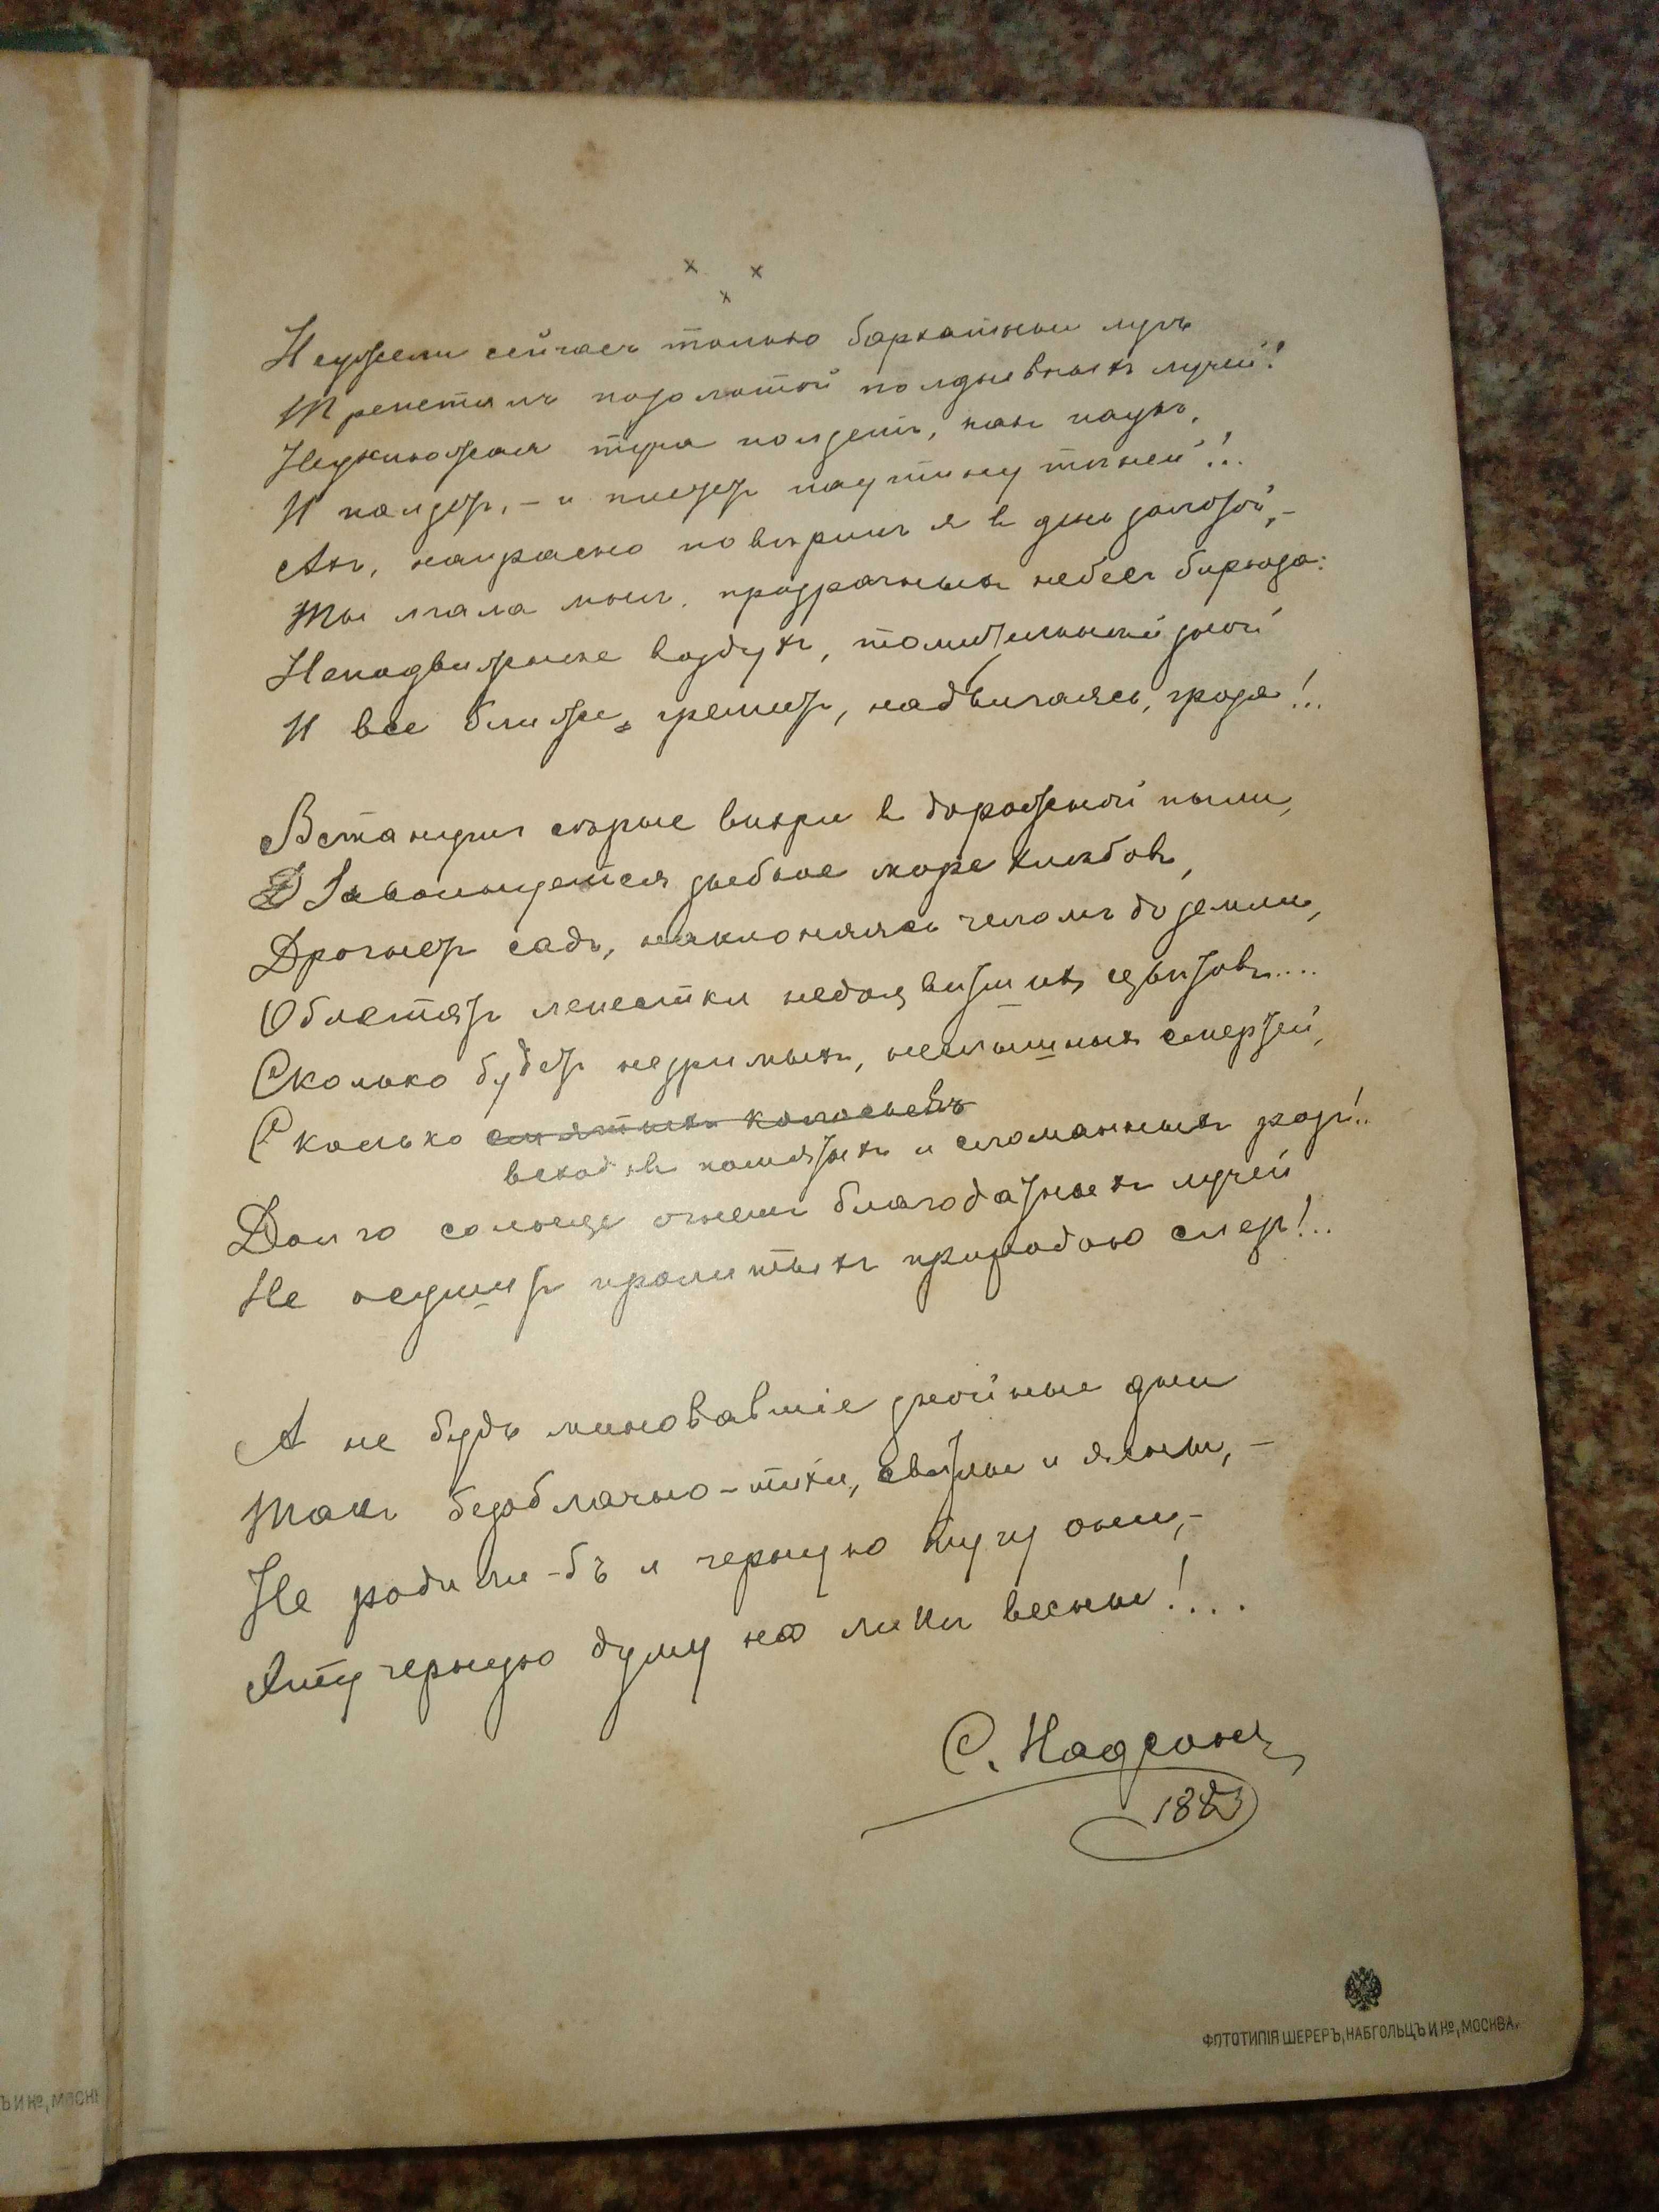 х х
х
Неужели сейчасъ только бархатный лугъ
Трепеталъ позолотой полдневныхъ лучей?
Неуклюжая туча ползетъ, какъ паукъ,
И ползетъ, – и плететъ паутину тѣней!..
Ахъ, напрасно повѣрилъ я въ день золотой, –
Ты лгала мнѣ, прозрачныхъ небесъ бирюза:
Неподвижнѣе воздухъ, томительнѣй зной
И все ближе гремитъ, надвигаясь, гроза!..
Встанутъ сѣрые вихри въ дорожной пыли,
Заволнуется зыбкое море хлѣбовъ,
Дрогнетъ садъ, наклоняясь челомъ до земли,
Облетятъ лепестки недоцвѣтшихъ цвѣтовъ....
Сколько будетъ незримыхъ, неслышныхъ смертей,
Сколько смятыхъ колосьевъ
всходовъ помятыхъ и сломанныхъ розъ!..
Долго солнце огнемъ благодатныхъ лучей
Не осушитъ пролитыхъ природою слезъ!..
А не будь миновавшіе знойные дни
Такъ безоблачно-тихи, свѣтлы и ясны, –
Не родили-бъ и черную тучу они, –
Эту черную думу на ликѣ весны!....
С. Надсонъ
1883
ФОТОТИПІЯ ШЕРЕРЪ, НАБГОЛЬЦЪ И Кº, МОСКВА.
Ъ И Кº, МОСК